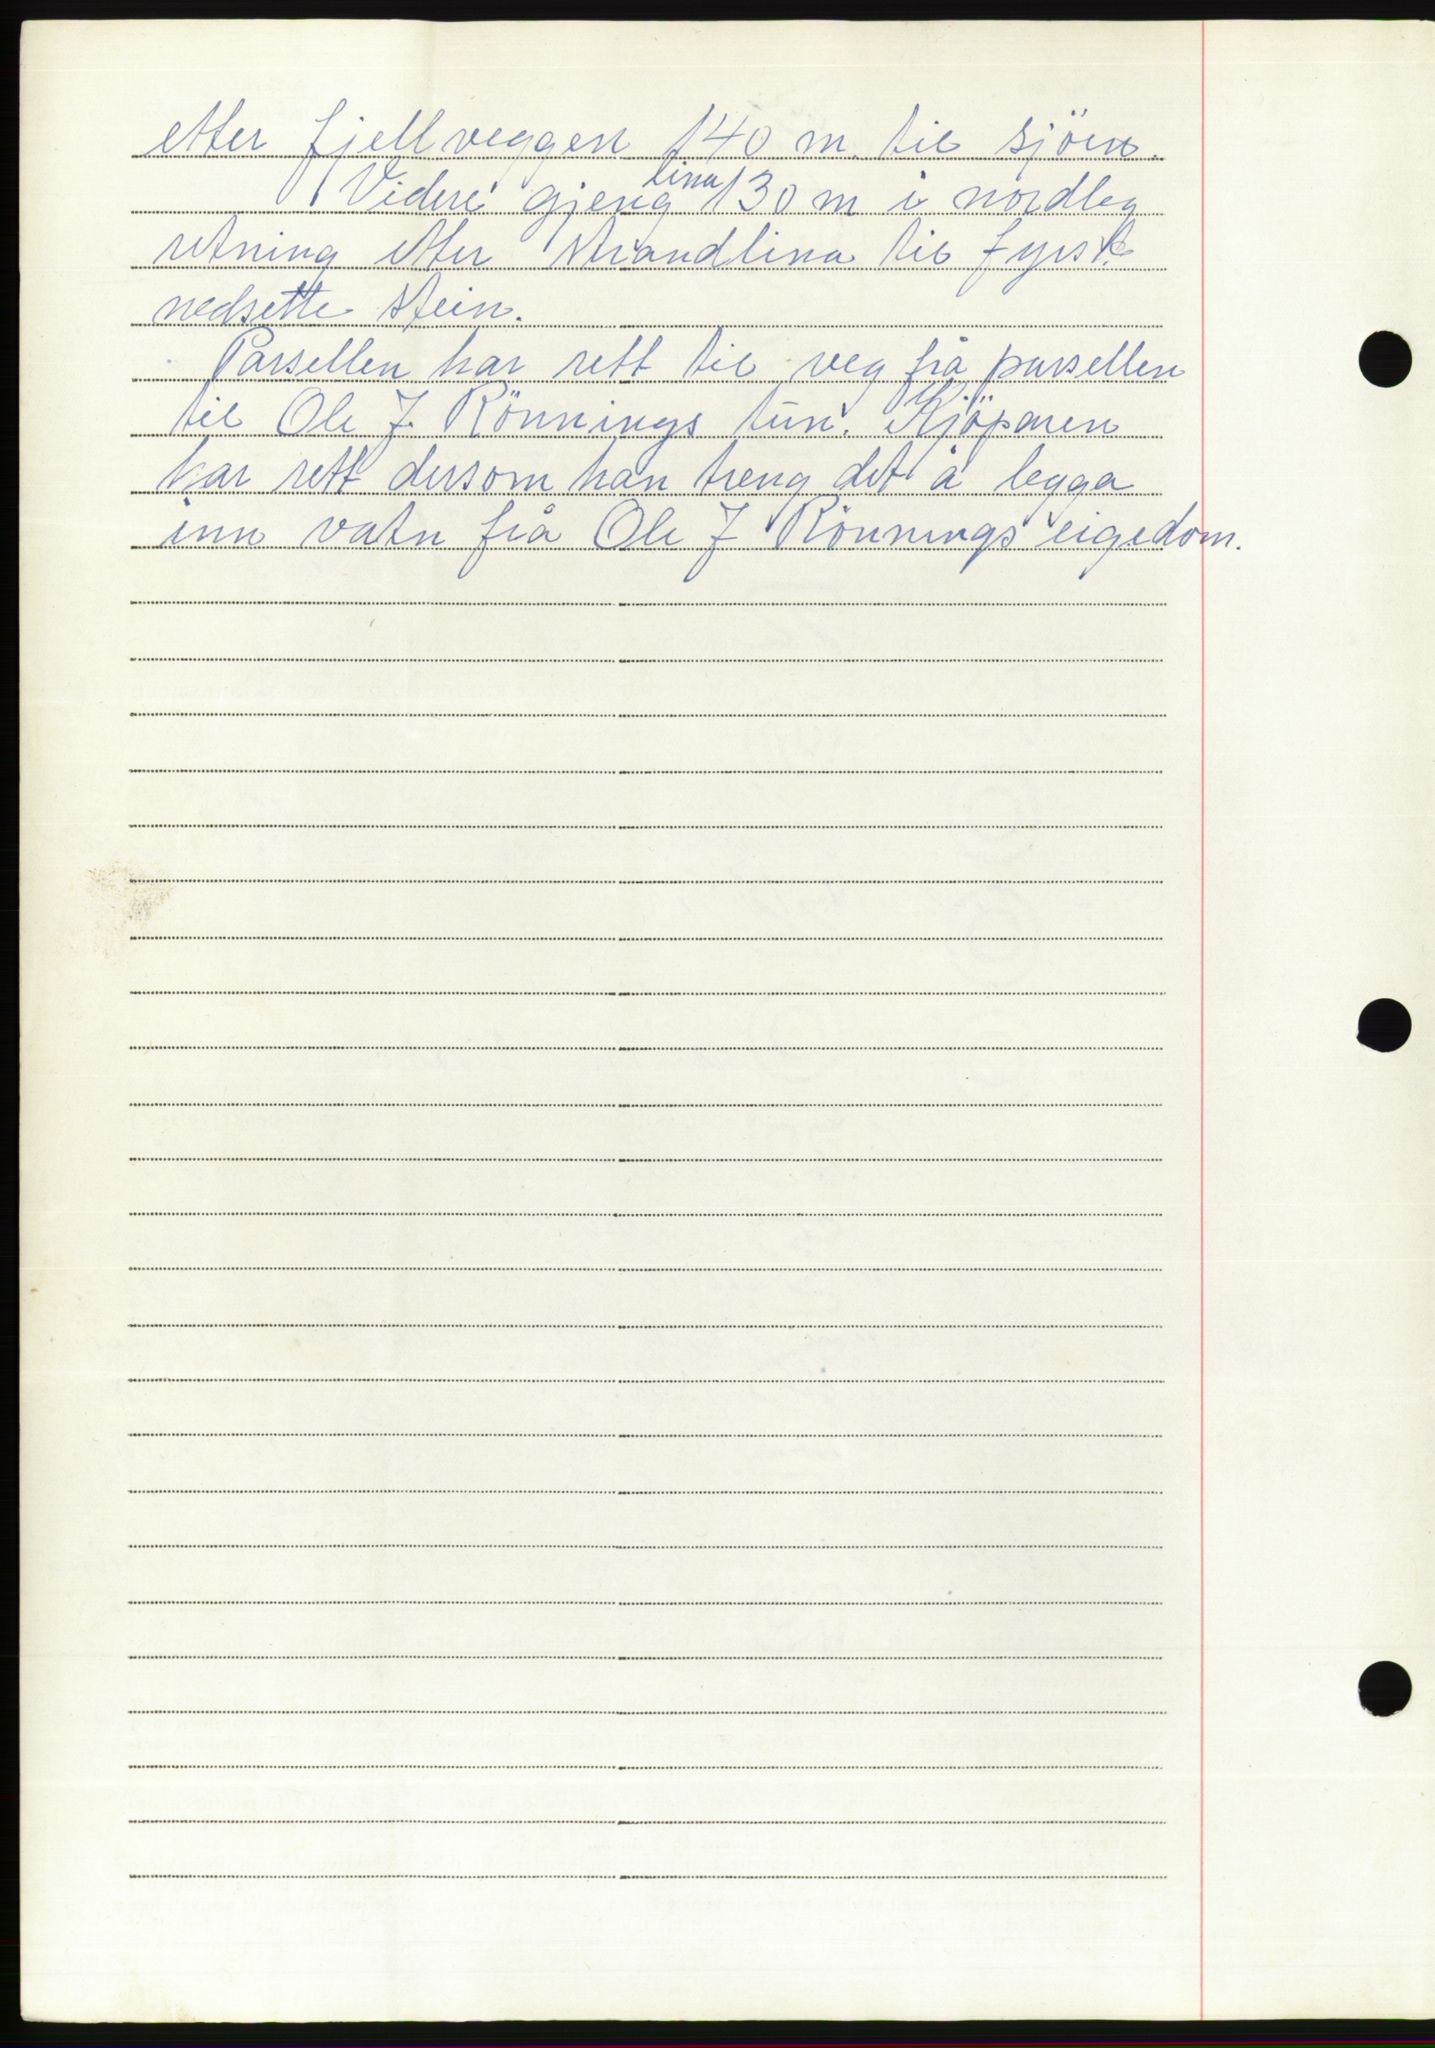 etter fjellveggen 140 m. til sjöen.
Videre gjeng lina 130 m i nordleg
retning etter strandlina til fyrst
nedsette stein.
Parsellen har rett til veg frå parsellen
til Ole J. Rönnings tun. Kjöparen
har rett dersom han treng det å legga
inn vatn frå Ole J Rönnings eigedom.